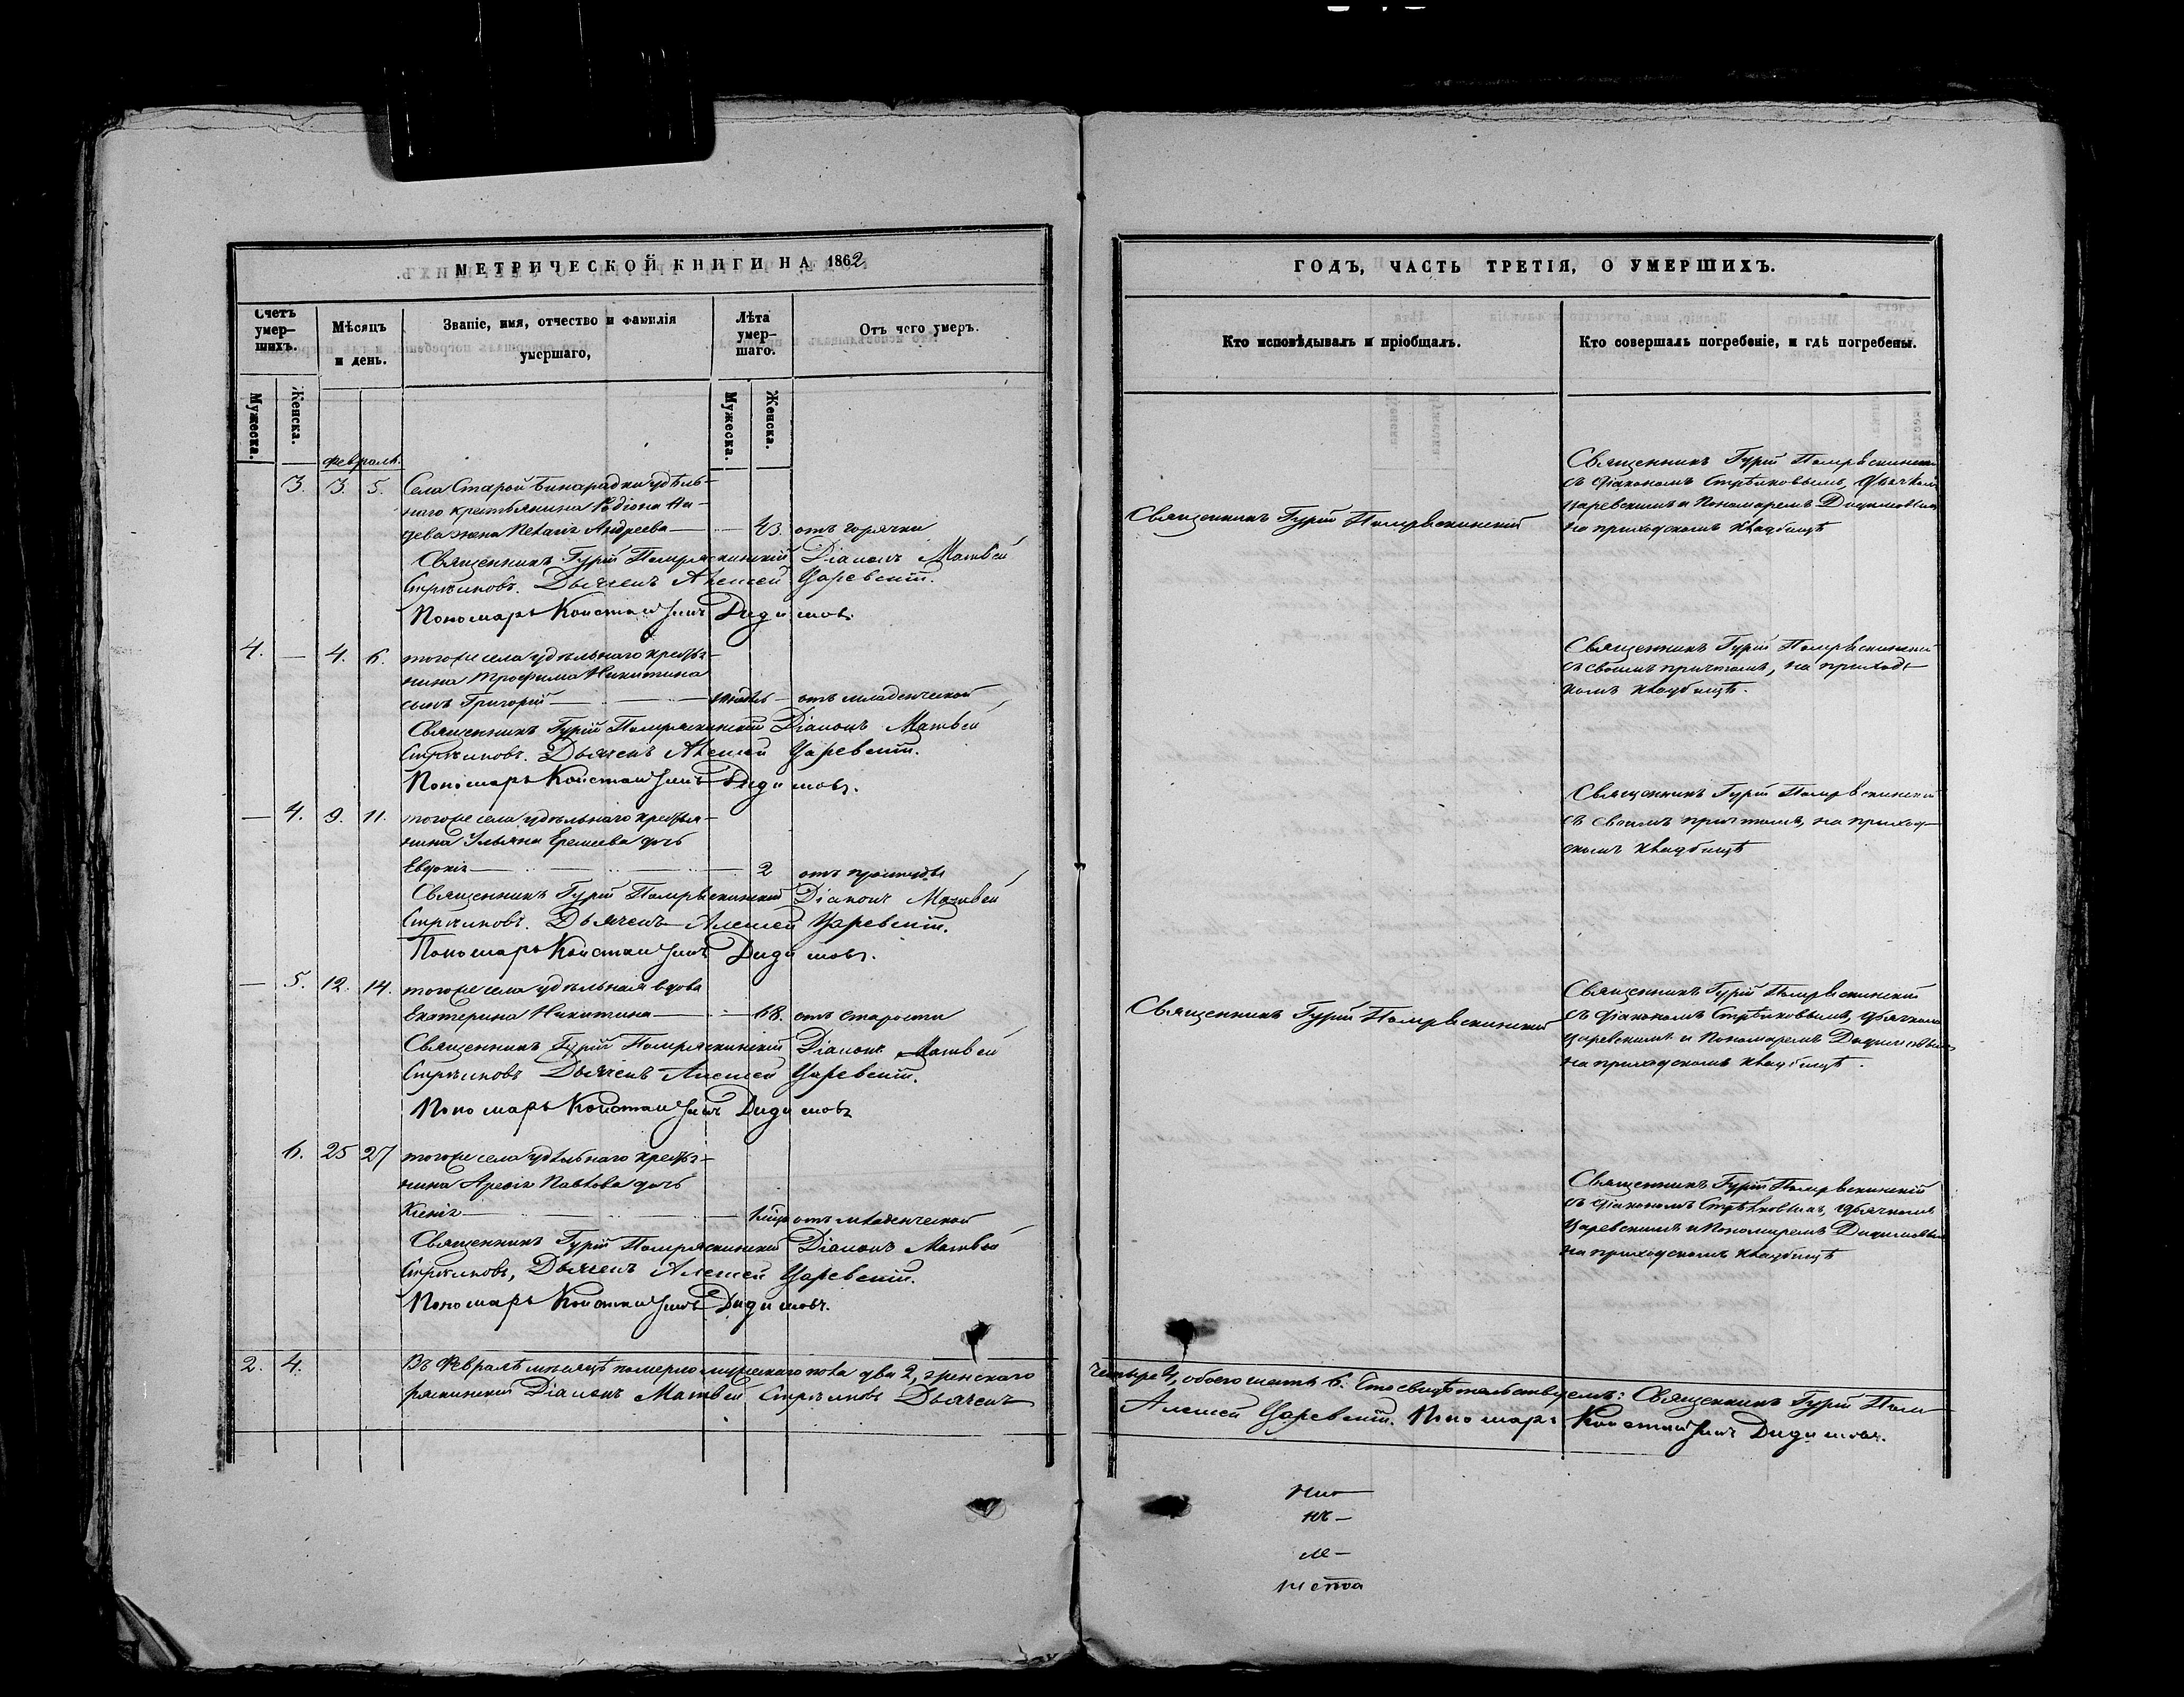 МЕТРИЧЕСКОЙ КНИГИ НА 1862
Счетъ умер-шихъ.
Мѣсяцъ и день.
Званіе, имя, отчество и фамилія умершаго,
Лѣта умер-шаго.
Отъ чего умеръ.
Мужеска.
Женска.
Мужеска.
Женска.
Февраль.
3. 3. 5. Села Старой Бинарадки удѣль-
наго крестьянина Родіона
жена Андреева — 43. отъ горячки
Священникъ Гурій Помряскинскій Діаконъ Матвей
Стрѣлковъ. Дьячекъ Алексей Царевскій.
Пономарь Константинъ Дидимовъ.
4. — 4. 6. тогоже села удѣльнаго крестья-
нина Трофима Никитина
сынъ Григорій — отъ младенческой
Священникъ Гурій Помряскинскій Діаконъ Матвей
Стрѣлковъ. Дьячекъ Алексей Царевскій.
Пономарь Константинъ Дидимовъ.
— 4. 9. 11. тогоже села удѣльнаго крестья-
нина Ульяна Еремеева дочь
Евдокія — 2 отъ простуды
Священникъ Гурій Помряскинскій Діаконъ Матвей
Стрѣлковъ. Дьячекъ Алексей Царевскій.
Пономарь Константинъ Дидимовъ.
— 5. 12. 14. тогоже села удѣльная вдова
Екатерина Никитина — 68. отъ старости
Священникъ Гурій Помряскинскій Діаконъ Матвей
Стрѣлковъ Дьячекъ Алексей Царевскій.
Пономарь Константинъ Дидимовъ
6. 25 27 тогоже села удѣльнаго крестья-
нина Павлова дочь
Ксенія — отъ младенческой
Священникъ Гурій Помряскинскій Діаконъ Матвей
Стрѣлковъ, Дьячекъ Алексей Царевскій.
Пономарь Константинъ Дидимовъ.
2. 4. Въ Февралѣ мѣсяцѣ померло мужескаго пола два 2, женскаго
ряскинскій Діаконъ Матвей Стрѣлковъ Дьячекъ
ГОДЪ, ЧАСТЬ ТРЕТІЯ, О УМЕРШИХЪ.
Кто исповѣдывалъ и пріобщалъ.
Кто совершалъ погребеніе, и гдѣ погребены.
Священникъ Гурій Помряскинскій
Священникъ Гурій Помряскинскій
съ Діакономъ Стрѣлковымъ, дьячкомъ
Царевскимъ и Пономаремъ Дидимовымъ
на приходскомъ кладбищѣ
Священникъ Гурій Помряскинскій
съ своимъ причтомъ, на приходс-
комъ кладбищѣ.
Священникъ Гурій Помряскинскій
съ своимъ причтомъ, на приход-
скомъ кладбищѣ
Священникъ Гурій Помряскинскій
Священникъ Гурій Помряскинскій
съ Діакономъ Стрѣлковымъ, дьячкомъ
Царевскимъ и Пономаремъ Дидимовымъ
на приходскомъ кладбищѣ.
Священникъ Гурій Помряскинскій
съ Діакономъ Стрѣлковымъ, дьячкомъ
Царевскимъ и Пономаремъ Дидимовымъ
на приходскомъ кладбищѣ
четыре 4, обоего шесть 6. Въ томъ свидѣтельствуемъ: Священникъ Гурій Пом-
Алексей Царевскій. Пономарь Константинъ Дидимовъ.